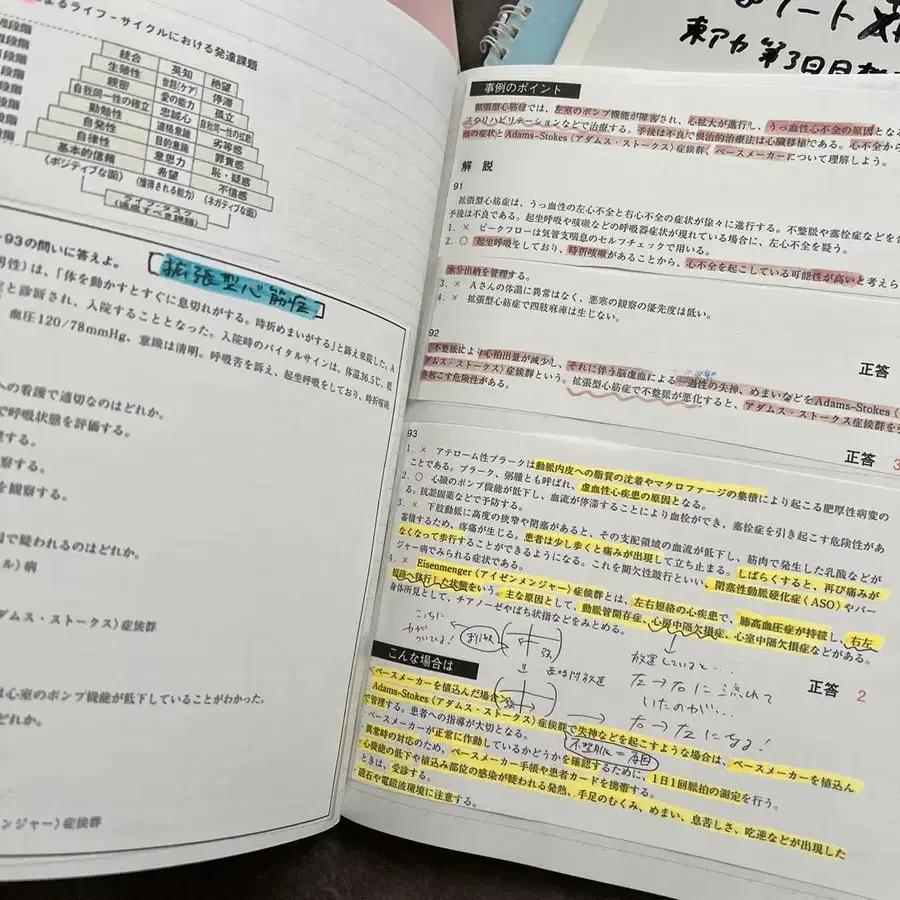 によるライフ−サイクルにおける発達課題
段階
段階
段階
段階
段階
統合 英知 絶望
生殖性 世話(ケア) 停滞
親密 愛の能力 孤立
自我同一性の確立 忠誠心 自我同一性の拡散
勤勉性 適格意識 劣等感
自発性 目的意識 罪責感
自律性 意思力 恥・疑惑
基本的信頼 希望 不信感
(ポジティブな面) (獲得される能力) (ネガティブな面)
ライフ−タスク
(達成すべき課題)
93の問いに答えよ。
拡張型心筋症
男性)は、「体を動かすとすぐに息切れがする。時折めまいがする」と訴え来院した。A
と診断され、入院することとなった。入院時のバイタルサインは、体温36.5℃、脈
血圧120/78mmHg、意識は清明。呼吸苦を訴え、起坐呼吸をしており、時折咳嗽
への看護で適切なのはどれか。
で呼吸状態を評価する。
理する。
察する。
を観察する。
因で疑われるのはどれか。
ル)病
ダムス・ストークス)症候群
は心室のポンプ機能が低下していることがわかった。
どれか。
ンメンジャー)症候群
ノート
東アカ 第3日目
事例のポイント
拡張型心筋症では、左室のポンプ機能が障害され、心拡大が進行し、うっ血性心不全の原因となる
法やリハビリテーションなどで治療する。予後は不良で根治的治療法は心臓移植である。心不全から
頭の症状とAdams–Stokes(アダムス・ストークス)症候群、ペースメーカーについて理解しよう。
解説
91
拡張型心筋症は、うっ血性の左心不全と右心不全の症状が徐々に進行する。不整脈や塞栓症などを合
予後は不良である。起坐呼吸や咳嗽などの呼吸器症状が現れている場合に、左心不全を疑う。
1. × ピークフローは気管支喘息のセルフチェックで用いる。
2. ○ 起坐呼吸をしており、時折咳嗽があることから、心不全を起こしている可能性が高いと考えら
水分出納を管理する。
3. × Aさんの体温に異常はなく、悪寒の観察の優先度は低い。
4. × 拡張型心筋症で四肢麻痺は生じない。
正答
92
不整脈により心拍出量が減少し、それに伴う脳虚血による一過性の失神、めまいなどをAdams–Stokes(
アダムス・ストークス)症候群という。拡張型心筋症で不整脈が悪化すると、アダムス・ストークス症候群を引
き起こす危険性がある。
正答 3
93
1. × アテローム性プラークは動脈内皮への脂質の沈着やマクロファージの集積により起こる肥厚性病変の
ことである。プラーク、粥腫とも呼ばれ、虚血性心疾患の原因となる。
2. ○ 心臓のポンプ機能が低下し、血流が停滞することにより血栓ができ、塞栓症を引き起こす危険性があ
る。抗凝固薬などで予防する。
3. × 下肢動脈に高度の狭窄や閉塞があると、その支配領域の血流が低下し、筋肉で発生した乳酸などが
蓄積するため、疼痛が生じる。患者は少し歩くと痛みが出現して立ち止まる。しばらくすると、再び痛みが
なくなって歩行することができるようになる。これを間欠性跛行といい、閉塞性動脈硬化症(ASO)やバー
ジャー病でみられる症状である。
4. × Eisenmenger(アイゼンメンジャー)症候群とは、左右短絡の心疾患で、肺高血圧症が持続し、右左
短絡へ移行した状態をいう。主な原因として、動脈管開存症、心房中隔欠損症、心室中隔欠損症などがある。
身体所見として、チアノーゼやばち状指などをみとめる。
正答 2
こっちに
力が
ついてる!
長時間放運
放運していると…
左→右に流れて
いたのが…
右→左になる!
こんな場合は
<ペースメーカーを植込んだ場合>
Adams-Stokes(アダムス・ストークス)症候群で失神などを起こすような場合は、ペースメーカーを植込ん
で管理する。患者への指導が大切となる。
不整脈=毎回
・ペースメーカーが正常に作動しているかどうかを確認するために、1日1回脈拍の測定を行う。
・異常時の対応のため、ペースメーカー手帳や患者カードを携帯する。
・心機能の低下や植込み部位の感染が疑われる発熱、手足のむくみ、めまい、息苦しさ、吃逆などが出現した
ときは、受診する。
・磁石や電磁波環境に注意する。